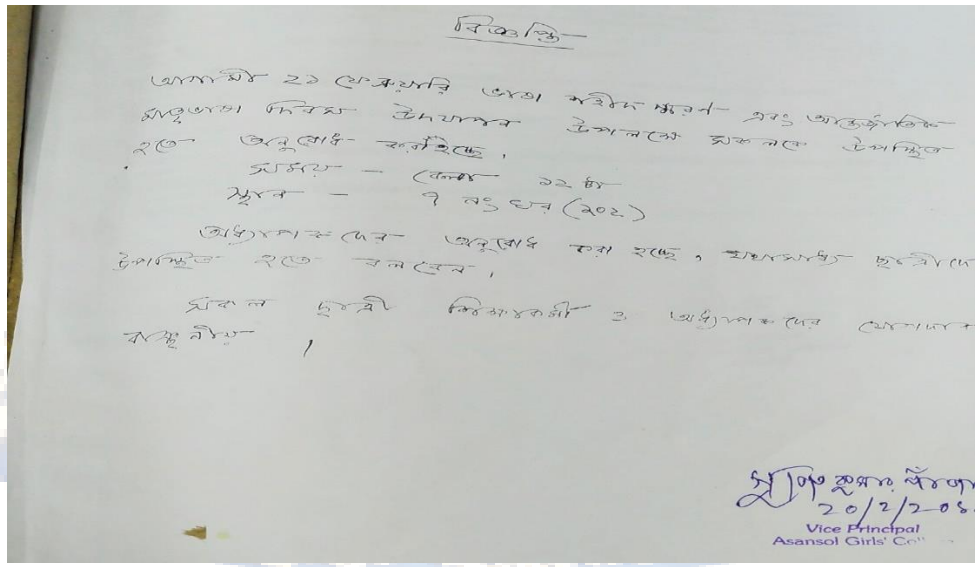 বিজ্ঞপ্তি
আগামী ২১ ফেব্রুয়ারি ভাষা শহীদ স্মরণ এবং আন্তর্জাতিক
মাতৃভাষা দিবস উদযাপন উপলক্ষে সকলকে উপস্থিত
হতে অনুরোধ করা হচ্ছে।
সময় – বেলা ১২ টা
স্থান – ৭ নং ঘর (২০২)
অধ্যাপকদের অনুরোধ করা হচ্ছে, যথাসাধ্য ছাত্রীদে
উপস্থিত হতে বলবেন।
সকল ছাত্রী শিক্ষাকর্মী ও অধ্যাপকদের যোগদান
বাঞ্ছনীয়।
কুমার
20/2/20
Vice Principal
Asansol Girls' Co